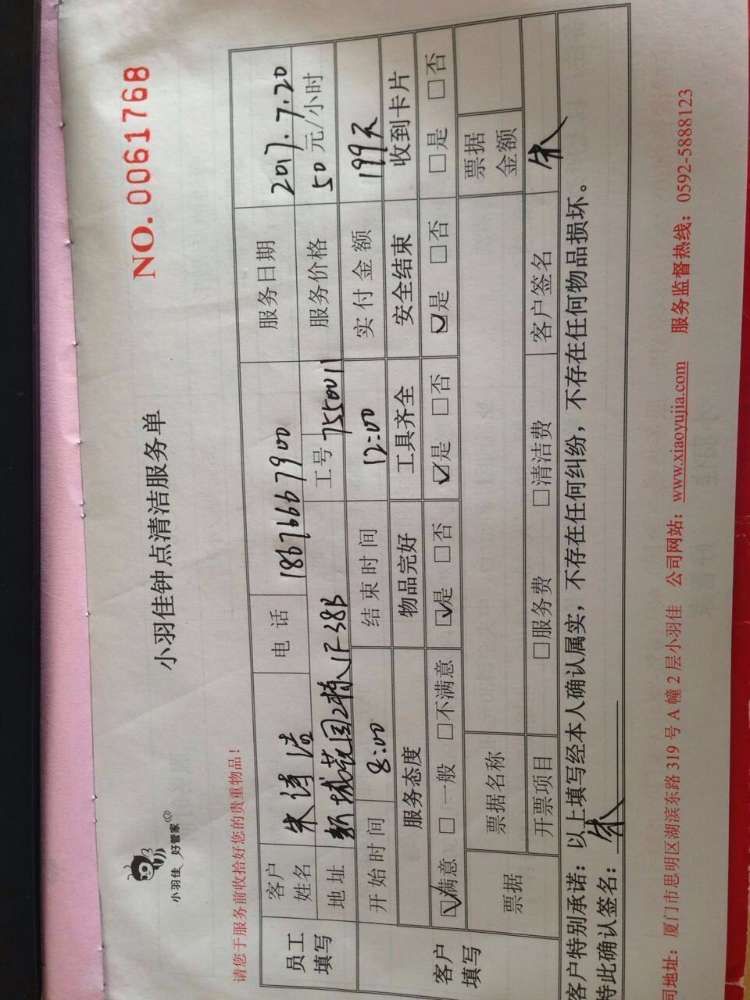 小羽佳 好管家
小羽佳钟点清洁服务单
NO. 0061768
请您于服务前收拾好您的贵重物品！
员工填写 客户姓名 电话 18676667900 服务日期 2017.7.20
地址 新城花园2栋1F38B 工号 7550011 服务价格 50元/小时
开始时间 8:00 结束时间 12:00 实付金额 199元
客户填写 服务态度 物品完好 工具齐全 安全结束 收到卡片
☑满意 □一般 □不满意 ☑是 □否 ☑是 □否 ☑是 □否 □是 □否
票据 票据名称 票据金额
开票项目 □服务费 □清洁费 客户签名 朱
客户特别承诺：以上填写经本人确认属实，不存在任何纠纷，不存在任何物品损坏。
特此确认签名：朱
司地址：厦门市思明区湖滨东路319号A幢2层小羽佳 公司网站：www.xiaoyujia.com 服务监督热线：0592-5888123